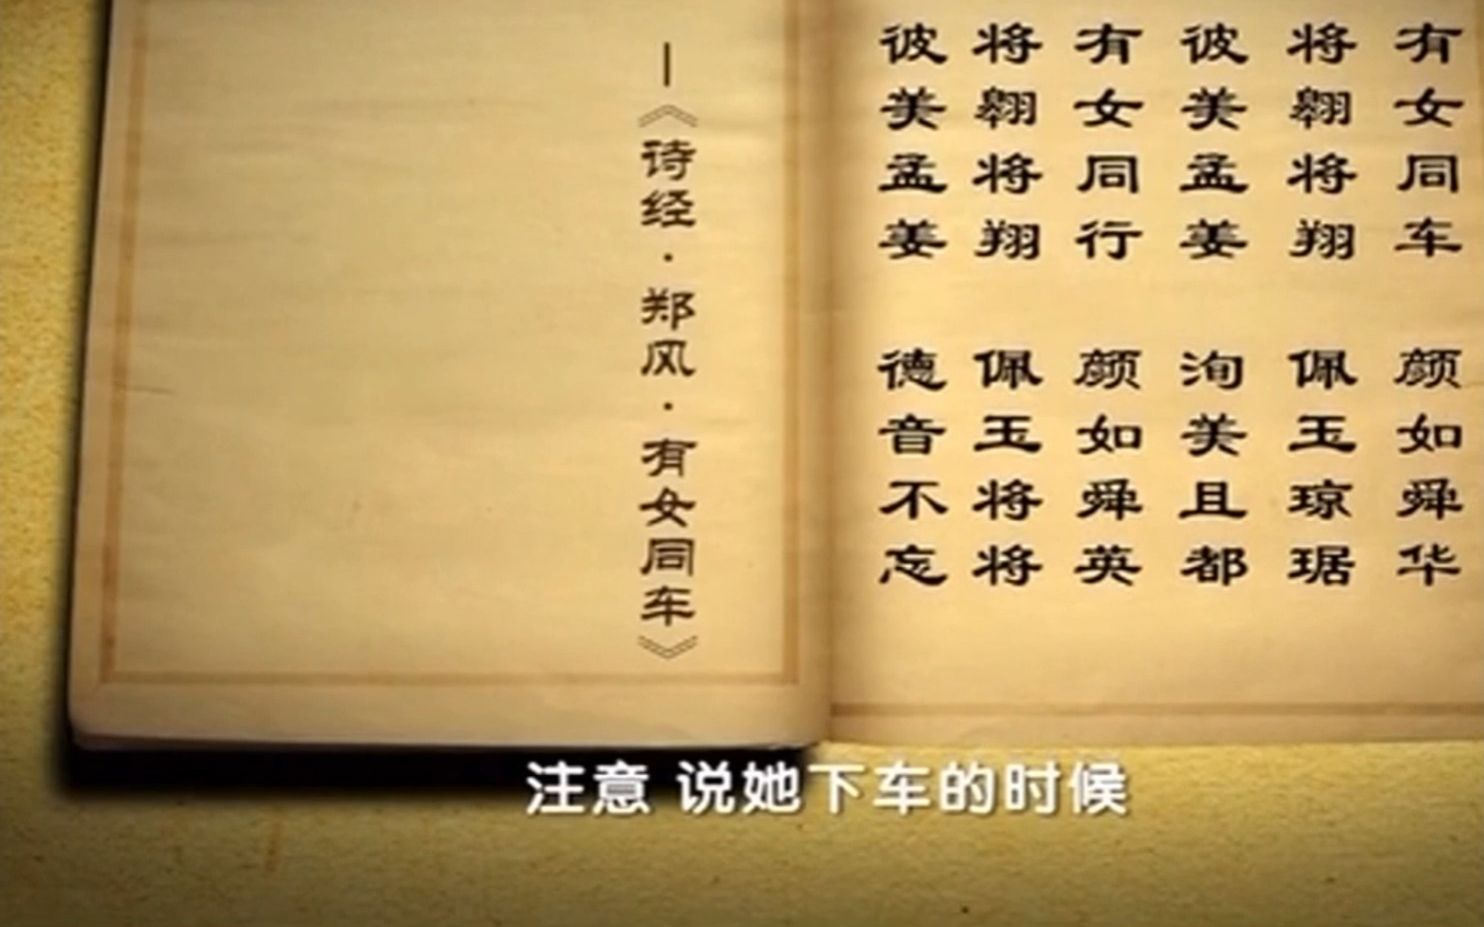 有女同车 颜如舜华
将翱将翔 佩玉琼琚
彼美孟姜 洵美且都
有女同行 颜如舜英
将翱将翔 佩玉将将
彼美孟姜 德音不忘
—《诗经·郑风·有女同车》
注意 说她下车的时候